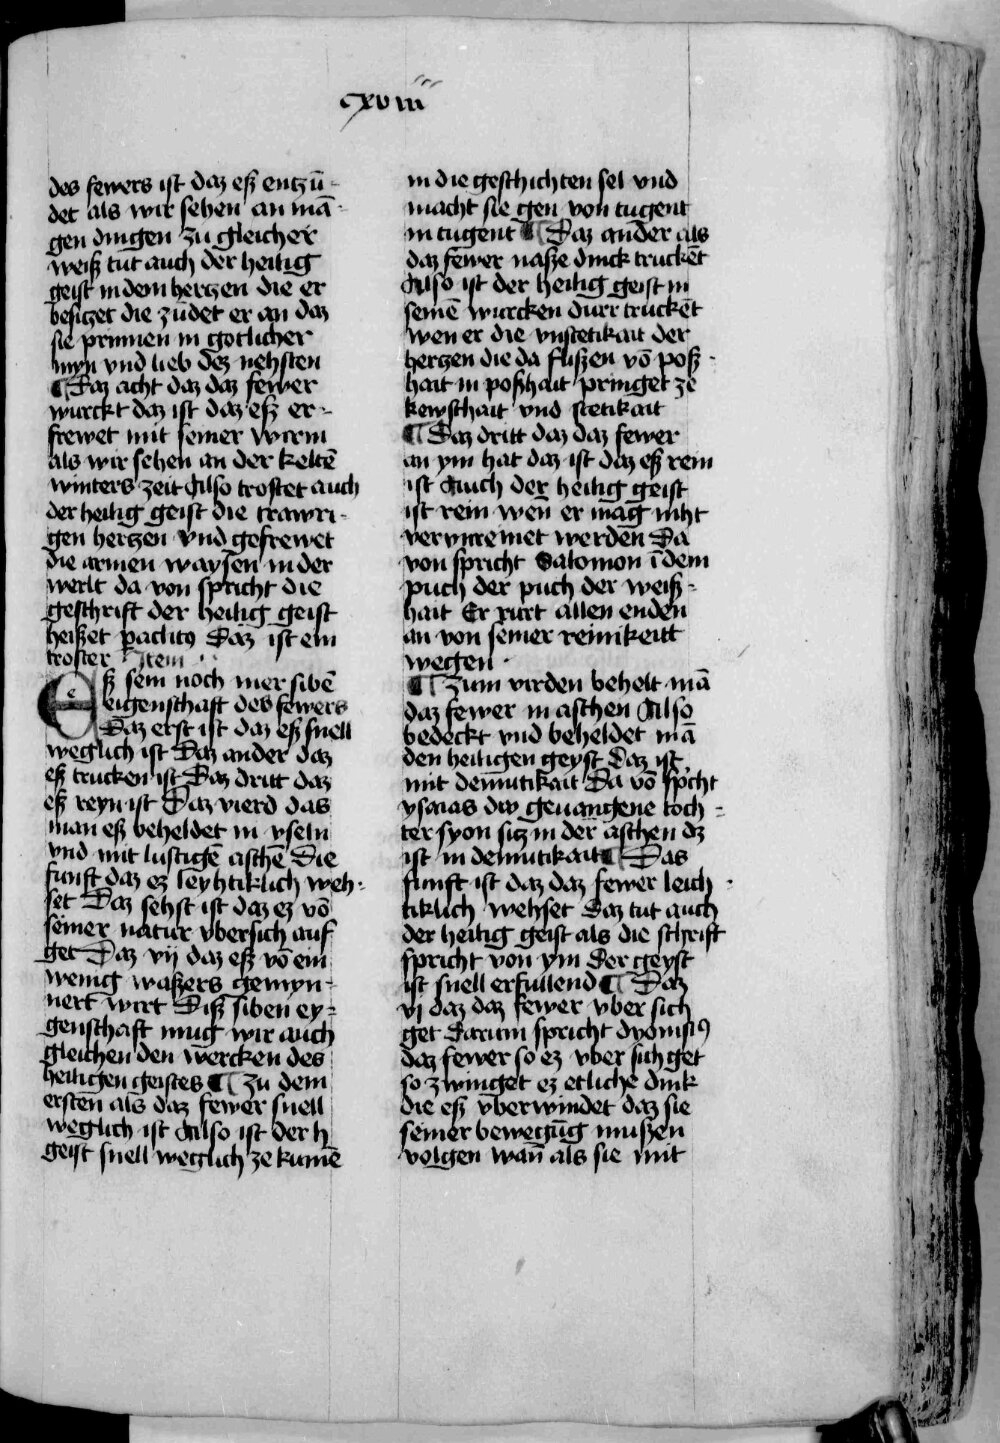 cxviii
des fewers ist daz eß entzū-
det als wir sehen an mā-
gen dingen zu gleicher
weiß tut auch der heilig
geist in dem hertzen die er
besitzet die zūdet er an daz
sie prinnen in gotlicher
myn vnd lieb dez nehsten
¶ Daz acht daz daz fewer
wurckt daz ist daz eß er-
frewet mit seiner wirm
als wir sehen an der keltē
winters zeit Also trostet auch
der heilig geist die trawri-
gen hertzen vnd gefrewet
die armen waysen in der
werlt da von spricht die
geschrift der heilig geist
heißet paclitꝰ Daz ist ein
troster Item
Eß sein noch mer sibē
eigenschaft des fewers
Daz erst ist daz eß snell
weglich ist Daz ander daz
eß trucken ist Daz dritt daz
eß reyn ist Daz vierd das
man eß beheldet in vseln
vnd mit lustigē aschē Die
funft daz ez leyhtiklich weh-
set Daz sehst ist daz ez vō
seiner natur vbersich auf
get Daz vij daz eß vō ein
wenig waßers gemyn-
nert wirt Diß siben ey-
genschaft mug wir auch
gleichen den wercken des
heiligen geistes ¶ Zu dem
ersten als daz fewer snell
weglich ist Also ist der h
geist snell weglich ze kumē
in die geschichten sel vnd
macht sie gen von tugent
in tugent ¶ Daz ander als
daz fewer naße dinck truckēt
Also ist der heilig geist in
seinē wurcken durr truckēt
wen er die vnstetikait der
hertzen die da flißen vō poß-
hait in poßhait pringet ze
kewschait vnd stetikait
¶ Daz dritt daz daz fewer
an ym hat daz ist daz eß rein
ist Auch der heilig geist
ist rein wen er mag niht
vervnreinet werden Da
von spricht Salomon ī dem
puch der puch der weiß-
hait Er rurt allen enden
an von seiner reinikeitt
wegen
¶ Zum virden behelt mā
daz fewer in aschen Also
bedeckt vnd beheldet mā
den heiligen geyst daz ist
mit demutikait Da vō spcht
ysaias dw geuangene toch-
ter syon sitz in der aschen dz
ist in demutikait ¶ Das
funft ist daz daz fewer leich-
tiklich wehset Daz tut auch
der heilig geist als die schrift
spricht von ym Der geyst
ist snell erfullend ¶ Daz
vj daz daz fewer vber sich
get Darum spricht dyonisiꝰ
daz fewer so ez vber sich get
so zwinget ez etliche dink
die eß vberwindet daz sie
seiner bewegūg mußen
volgen wan̄ als sie mit